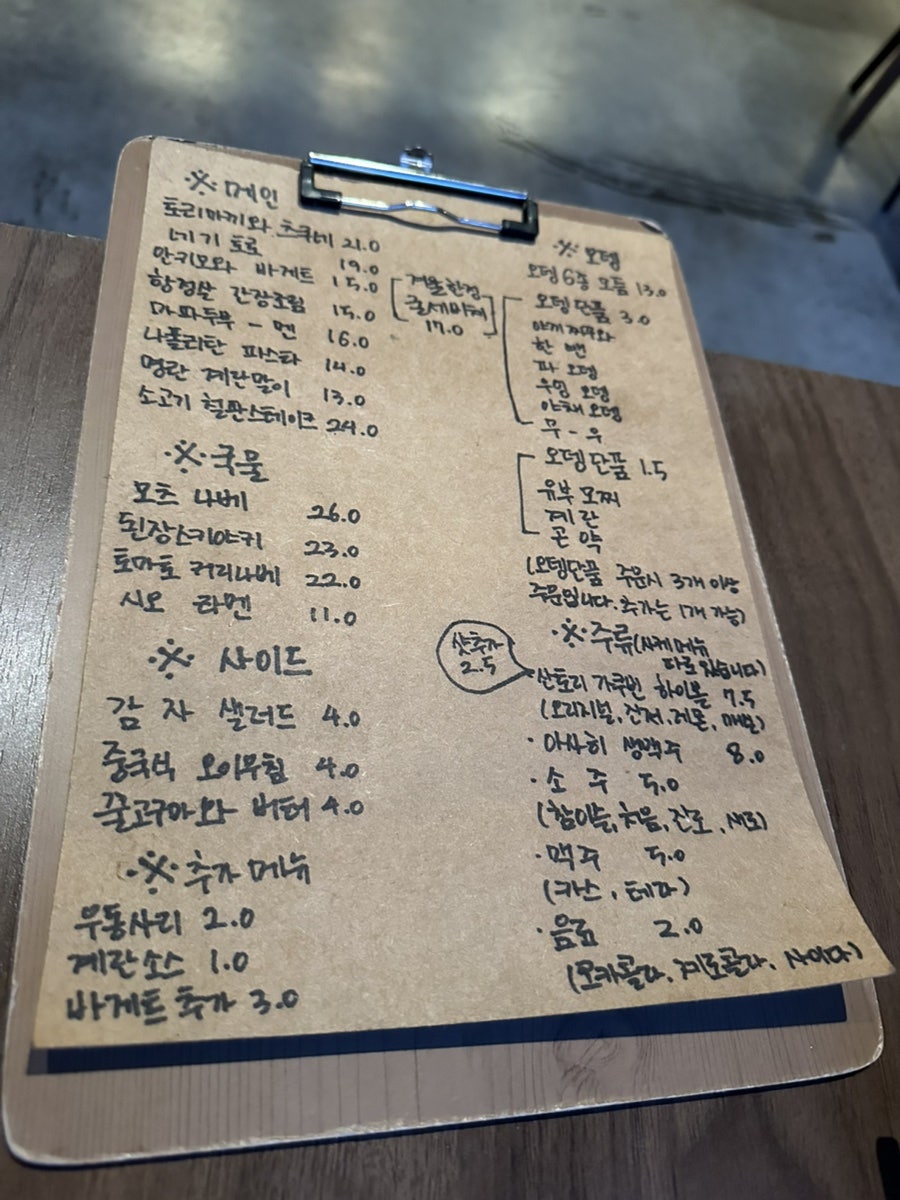 ※ 메인
토리마끼와 츠쿠네 21.0
네기 토로 19.0
안키모와 바게트 15.0
항정살 간장조림 15.0
마파두부 - 멘 16.0
나폴리탄 파스타 14.0
명란 계란말이 13.0
소고기 철판스테이크 24.0
겨울한정
굴세비체
17.0
※ 국물
모츠 나베 26.0
된장스키야키 23.0
토마토 커리나베 22.0
시오 라멘 11.0
※ 사이드
감자 샐러드 4.0
중국식 오이무침 4.0
꿀고구마와 버터 4.0
※ 추가 메뉴
우동사리 2.0
계란소스 1.0
바게트 추가 3.0
※ 오뎅
오뎅 6종 모둠 13.0
오뎅단품 3.0
한 뺀
파 오뎅
우엉 오뎅
야채 오뎅
무 - 우
오뎅단품 1.5
유부모찌
계란
곤약
(오뎅단품 주문시 3개 이상
주문입니다. 추가는 1개 가능)
※ 주류(사케메뉴
따로 있습니다)
샷추가
2.5
산토리 가쿠빈 하이볼 7.5
(오리지널, 진저, 레몬, 매실)
· 아사히 생맥주 8.0
· 소 주 5.0
(참이슬, 처음, 진로, 새로)
· 맥주 5.0
(카스, 테라)
· 음료 2.0
(코카콜라, 제로콜라, 사이다)